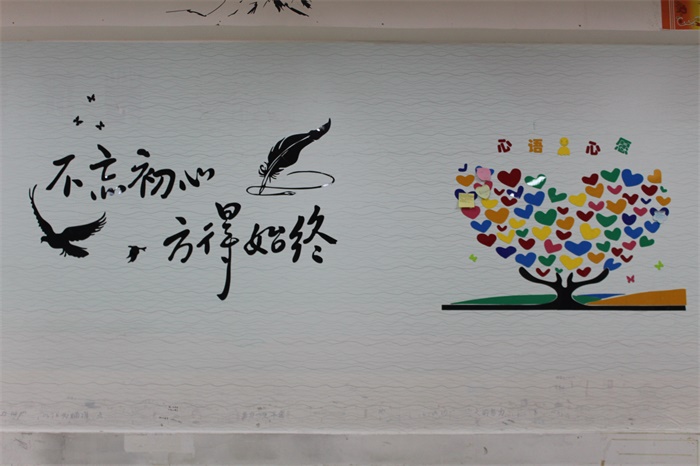 不忘初心
方得始终
心语心愿